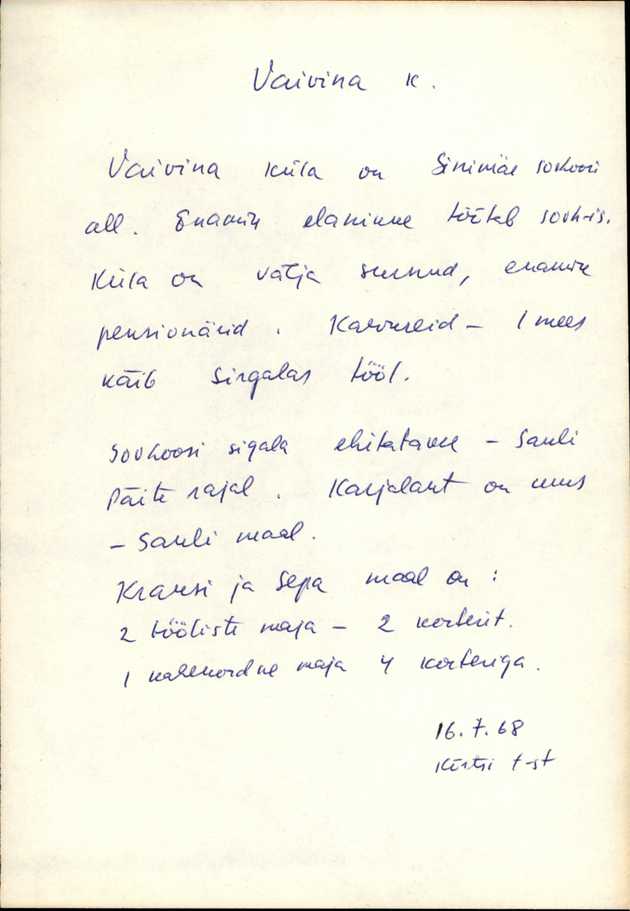 Vaivina k.
Vaivina küla on Sinimäe sovhoosi
all. Enamik elanikke töötab sovh-is.
Küla on välja surnud, enamik
pensionärid. Kaevureid – 1 mees
käib Sirgalas tööl.
Sovhoosi sigala ehitatakse – Sauli
Päite rajal. Karjalaut on uus
– Sauli maal.
Kransi ja Sepa maal on:
2 tööliste maja – 2 korterit.
1 kahekordne maja 4 korteriga.
16.7.68
t-st